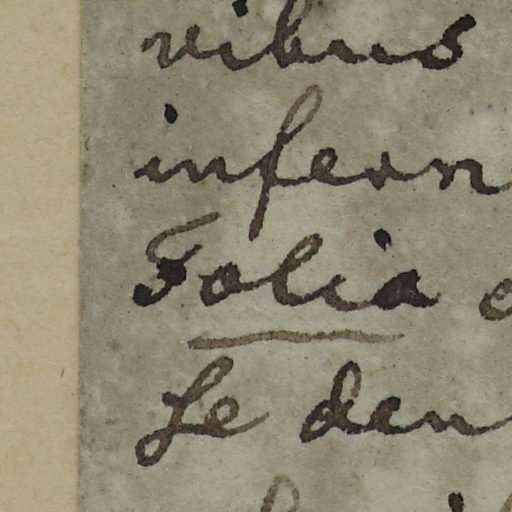 vibus
infern
Folia
Le den